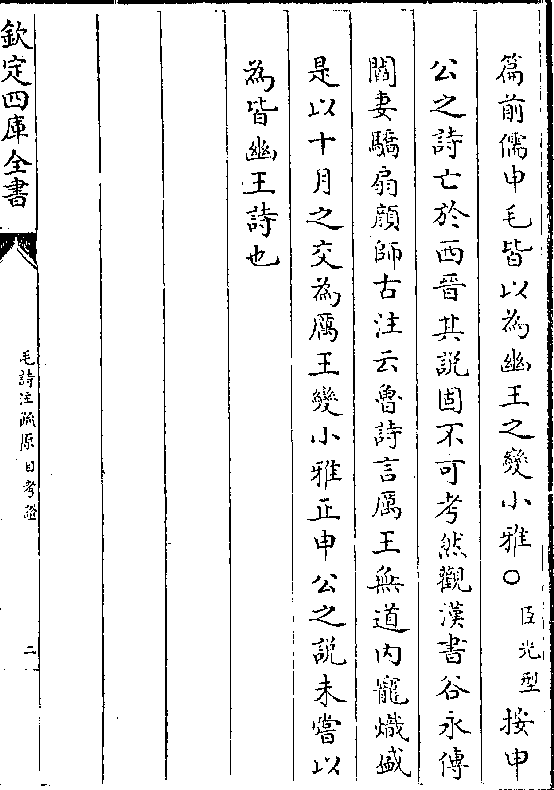 篇前儒申毛皆以為幽王之變小雅○臣光型按申
公之詩亡於西晉其説固不可考然觀漢書谷永傳
閻妻驕扇顔師古注云魯詩言厲王無道内寵熾盛
是以十月之交為厲王變小雅正申公之説未嘗以
為皆幽王詩也
欽定四庫全書
毛詩注疏原目考證
二